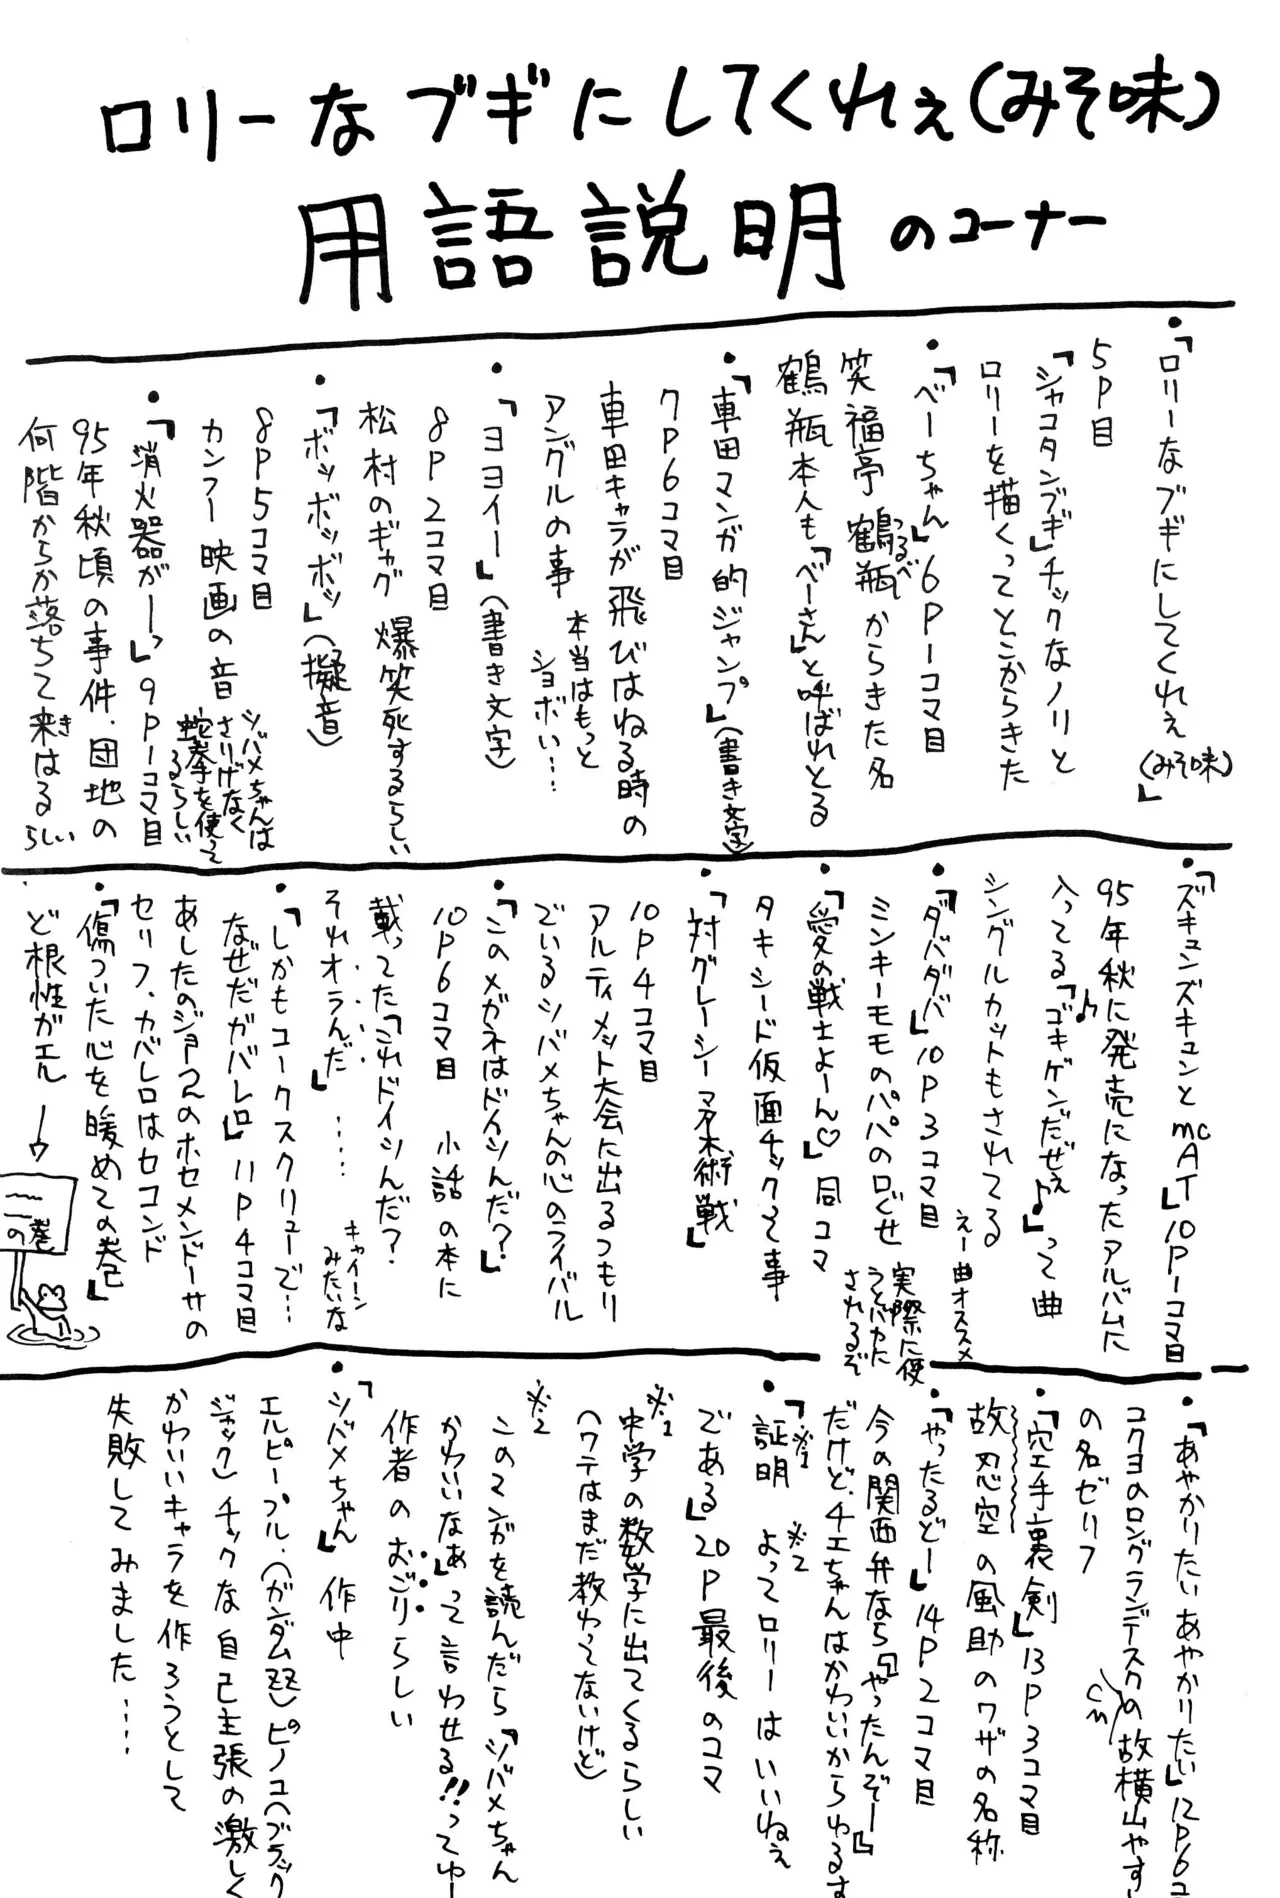 ロリーなブギにしてくれぇ(みそ味)
用語説明のコーナー
・「ロリーなブギにしてくれぇ(みそ味)」
5P目
「シャコタンブギ」チックなノリと
ロリーを描くってとこからきた
・「べーちゃん」6P1コマ目
笑福亭鶴瓶からきた名
つるべ
鶴瓶本人も「べーさん」と呼ばれとる
・「車田マンガ的ジャンプ」(書き文字)
7P6コマ目
車田キャラが飛びはねる時の
アングルの事 本当はもっと
ショボい…
・「ヨヨイー」(書き文字)
8P2コマ目
松村のギャグ 爆笑死するらしい
・「ボッボッボッ」(擬音)
8P5コマ目
カンフー映画の音
ツバメちゃんは
さりげなく
蛇拳を使って
るらしい
・「消火器がーっ」9P1コマ目
95年秋頃の事件.団地の
何階からか落ちて来はるらしい
き
・「ズキュンズキュンとmcAT」10P1コマ目
95年秋に発売になったアルバムに
入ってる「♪ゴキゲンだぜぇ♪」って曲
シングルカットもされてる
えー曲オススメ
・「ダバダバ」10P3コマ目
ミンキーモモのパパの口ぐせ
実際に使
うとバカに
されるぞ
・「愛の戦士よーん♡」同コマ
タキシード仮面チックって事
・「対グレーシー柔術戦」
10P4コマ目
アルティメット大会に出るつもり
でいるツバメちゃんの心のライバル
・「このメガネはドイツんだ?」
10P6コマ目 小話の本に
載ってた「これドイツんだ?
それオラんだ」……
キャイーン
みたいな
・「しかもコークスクリューで…
なぜだガバレロ」11P4コマ目
あしたのジョー2のホセメンドーサの
セリフ.カバレロはセコンド
・「傷ついた心を暖めての巻」
ど根性ガエル→
の巻
・「あやかりたいあやかりたい」12P6コ
コクヨのロングランデスクの故横山やすし
CM
の名ゼリフ
・「空手裏剣」13P3コマ目
故忍空の風助のワザの名称
・「やったるどー」14P2コマ目
今の関西弁なら「やったんぞー」
だけど.チエちゃんはかわいからゆるす
・「※1証明 ※2よってロリーはいいねぇ
である」20P最後のコマ
※1
中学の数学に出てくるらしい
(ワテはまだ教わってないけど)
※2
このマンガを読んだら「ツバメちゃん
かわいいなぁ」って言わせる!!ってゆー
作者のおごりらしい
・「ツバメちゃん」作中
エルピープル.(ガンダムZZ)ピノコ(ブラック
の
ジャック)チックな自己主張の激しく
かわいいキャラを作ろうとして
失敗してみました….